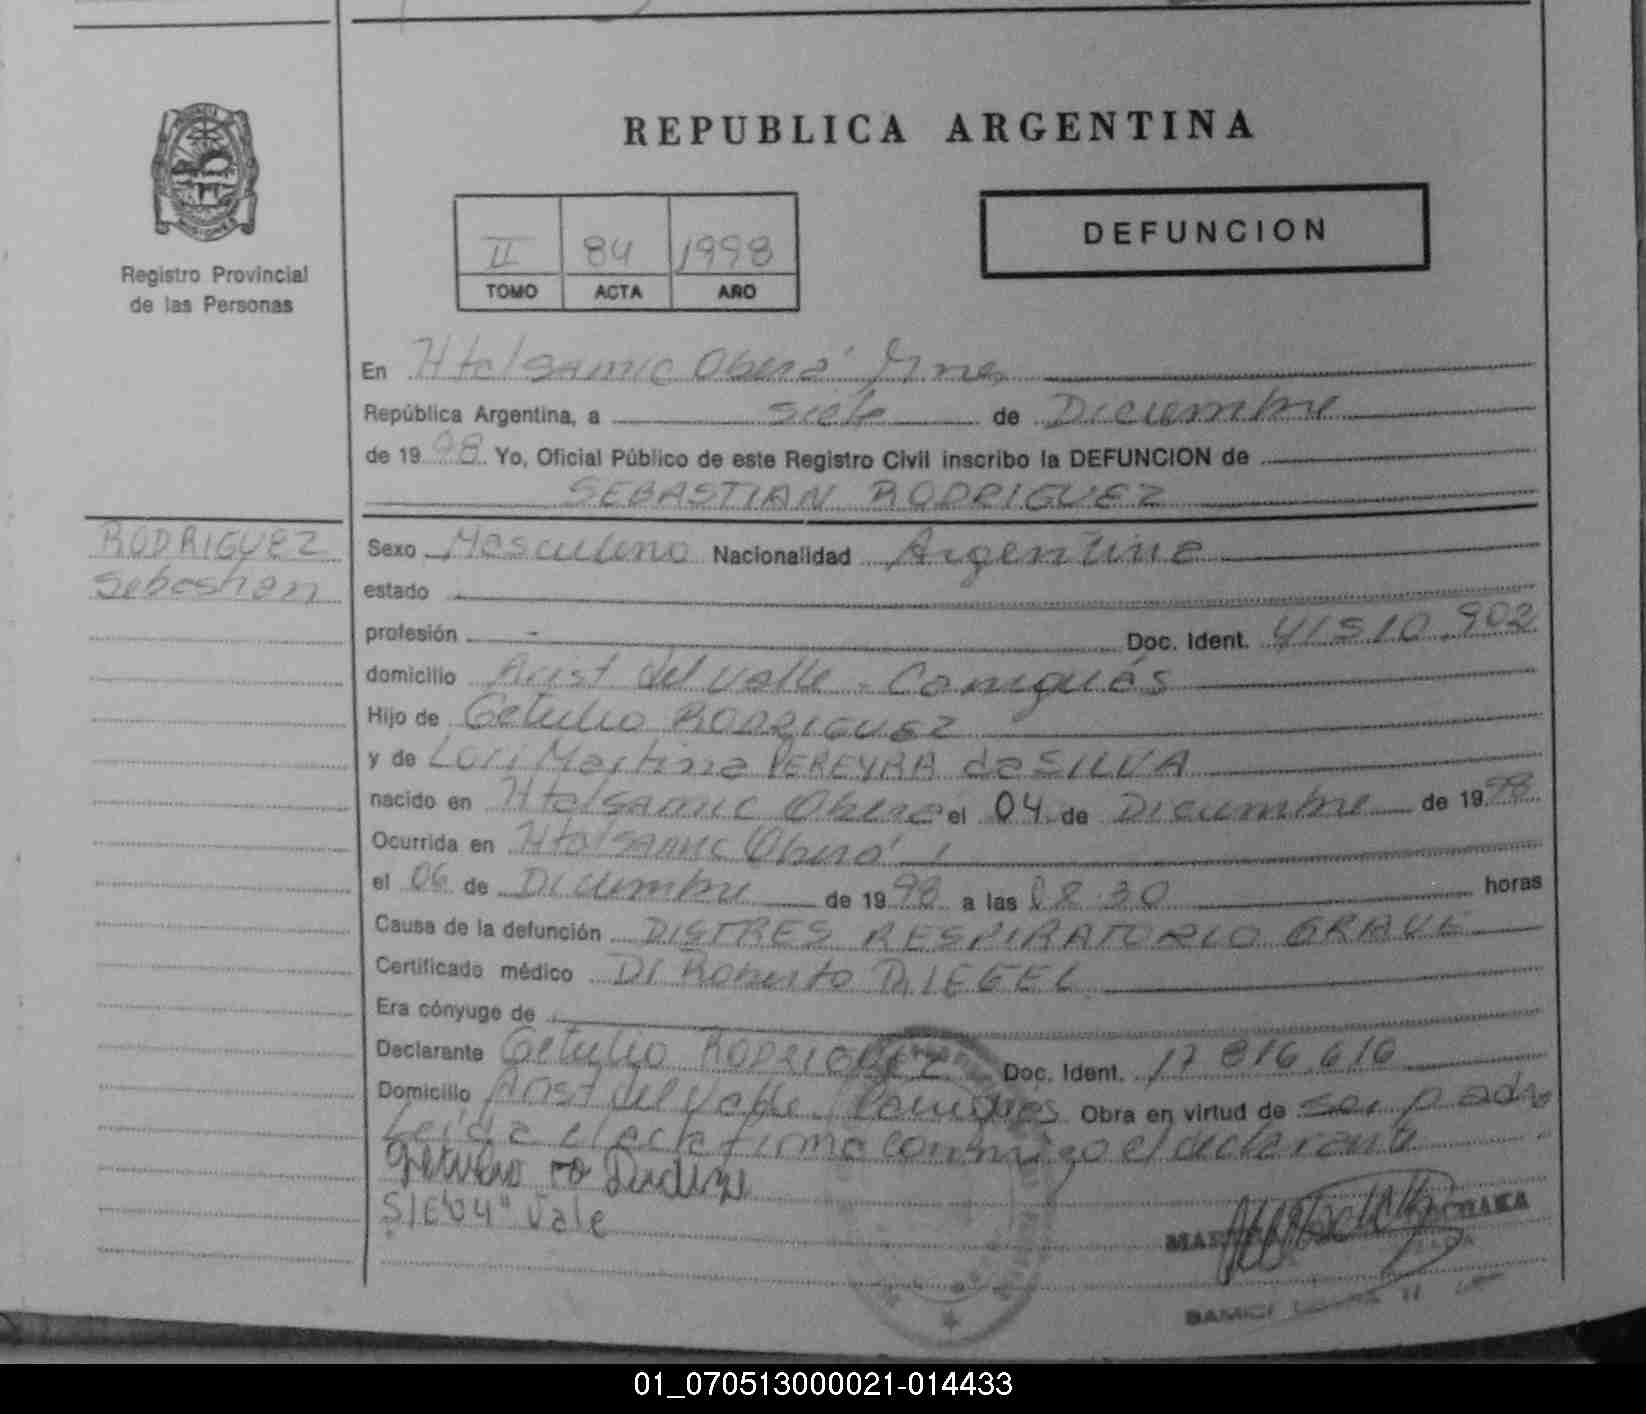 REPUBLICA ARGENTINA
Registro Provincial
de las Personas
II 84 1998
TOMO ACTA AÑO
DEFUNCION
En Htal Samic Oberá Mnes
República Argentina, a siete de Diciembre
de 1998 Yo, Oficial Público de este Registro Civil inscribo la DEFUNCION de
SEBASTIAN RODRIGUEZ
RODRIGUEZ
Sebastian
Sexo Masculino Nacionalidad Argentina
estado
profesión - Doc. Ident. 41510.902
domicilio Arist del Valle - Cainguás
Hijo de Getulio RODRIGUEZ
y de Lori Martina PEREYRA da SILVA
nacido en Htal Samic Oberá el 04 de Diciembre de 1998
Ocurrida en Htal Samic Oberá
el 06 de Diciembre de 1998 a las 08.30 horas
Causa de la defunción DISTRES RESPIRATORIO GRAVE
Certificado médico Dr Roberto DIEGEL
Era cónyuge de
Declarante Getulio RODRIGUEZ Doc. Ident. 17 816.616
Domicilio Arist del Valle Cainguás Obra en virtud de ser padre
Leida el acta firma conmigo el declarante
Getulio
S/E "04" Vale
SAMIC
01_070513000021-014433